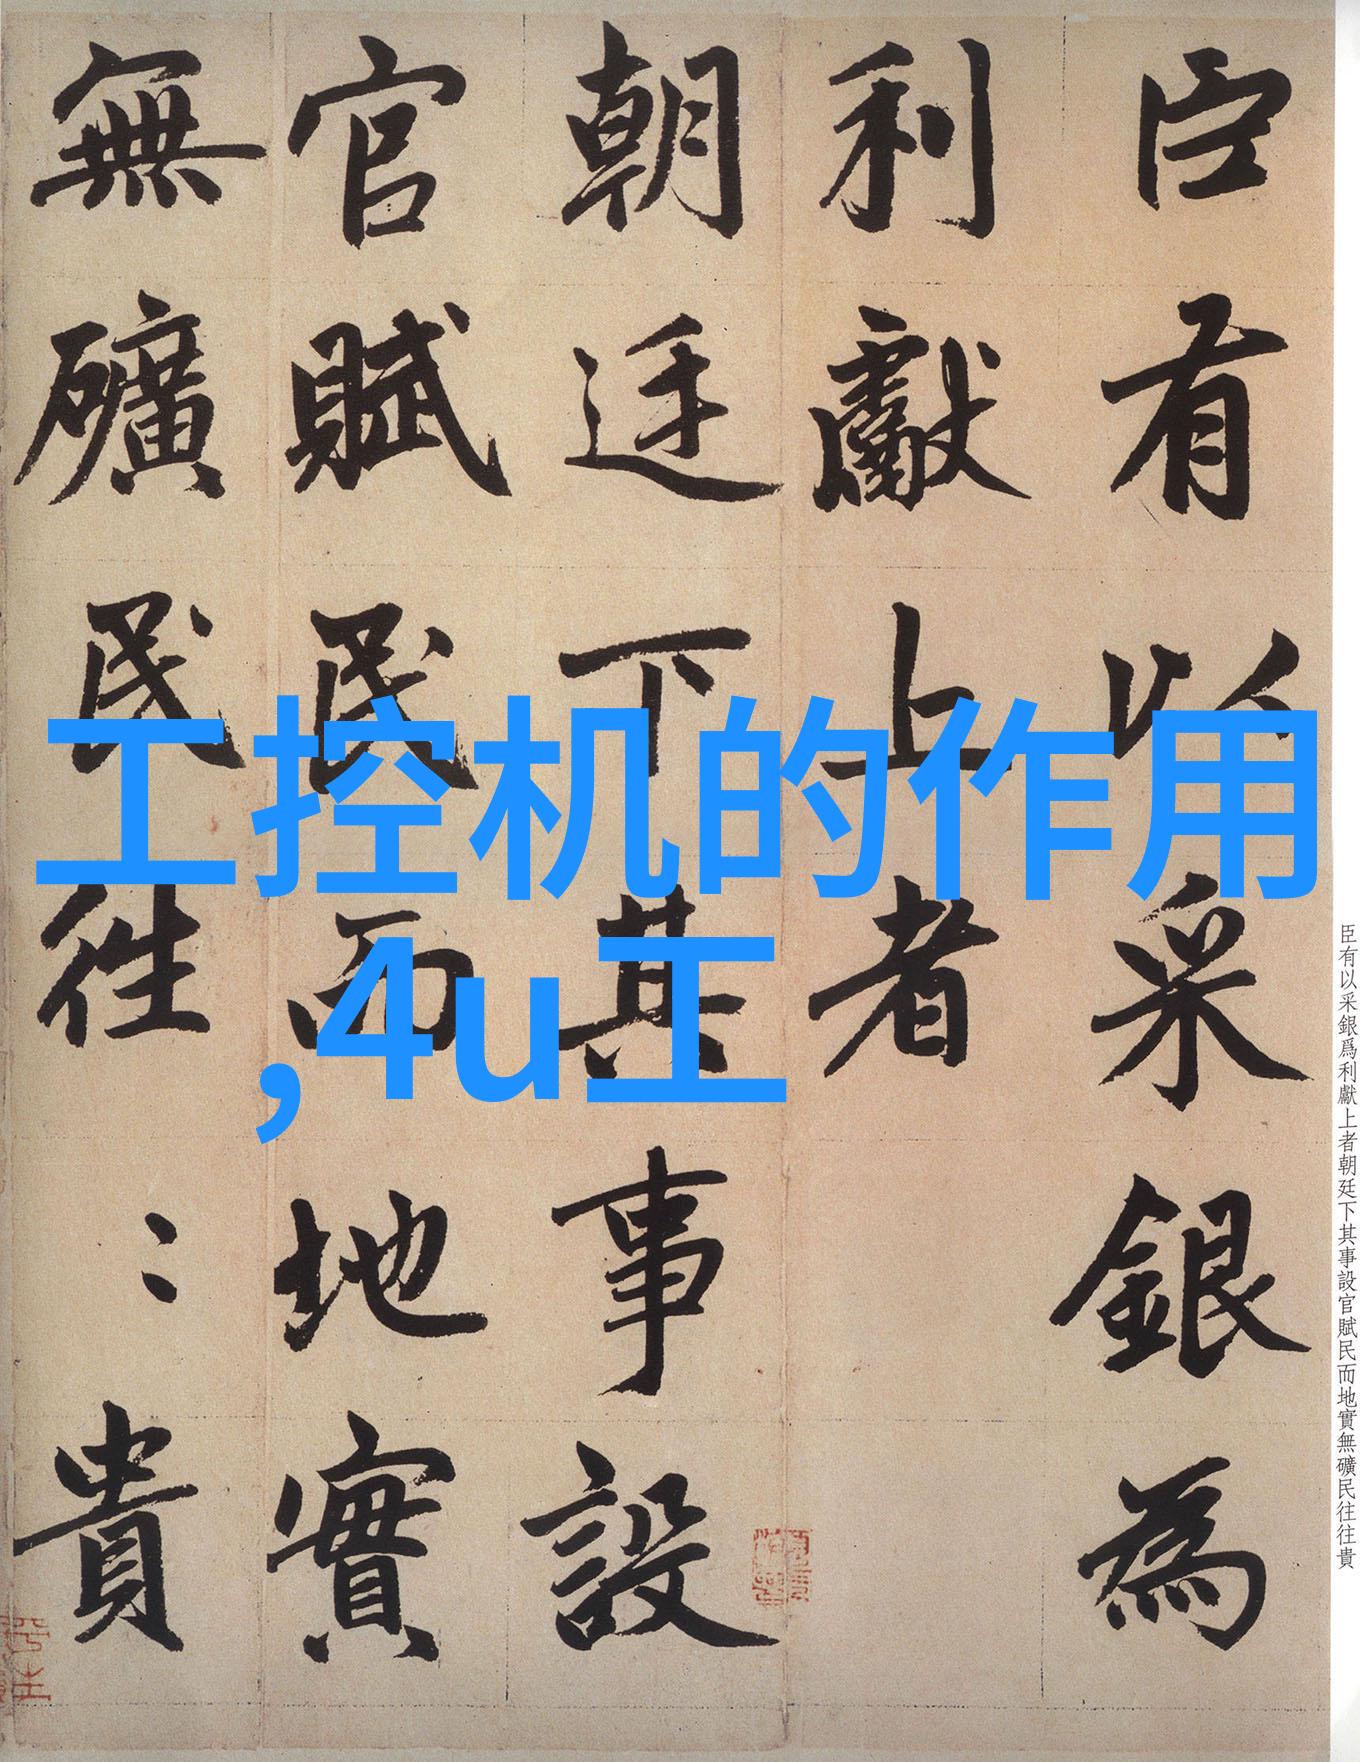 臣有以采銀為
利獻上者
朝廷下其事設
官賦民而地實
無礦民往〻貴
工控机的作用
,4u工
臣有以采銀爲利獻上者朝廷下其事設官賦民而地實無礦民往往貴